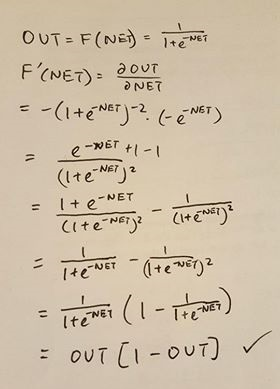 OUT = F(NET) = 1/(1+e^-NET)
F'(NET) = ∂OUT/∂NET
= -(1+e^-NET)^-2 · (-e^-NET)
= (e^-NET + 1 - 1)/(1+e^-NET)^2
= (1+e^-NET)/(1+e^-NET)^2 - 1/(1+e^-NET)^2
= 1/(1+e^-NET) - 1/(1+e^-NET)^2
= 1/(1+e^-NET) (1 - 1/(1+e^-NET))
= OUT [1 - OUT] ✓